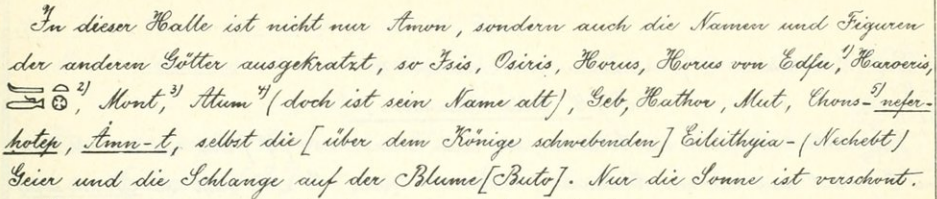 In dieser Halle ist nicht nur Amon, sondern auch die Namen und Figuren
der anderen Götter ausgekratzt, so Isis, Osiris, Horus, Horus von Edfu,¹⁾ Haroeris,
²⁾, Mont,³⁾ Atum⁴⁾ (doch ist sein Name alt), Geb, Hathor, Mut, Chons-⁵⁾nefer-
hotep, Åmn-t, selbst die [über dem Könige schwebenden] Eileithyia-(Nechebt)
Geier und die Schlange auf der Blume [Buto]. Nur die Sonne ist verschont.